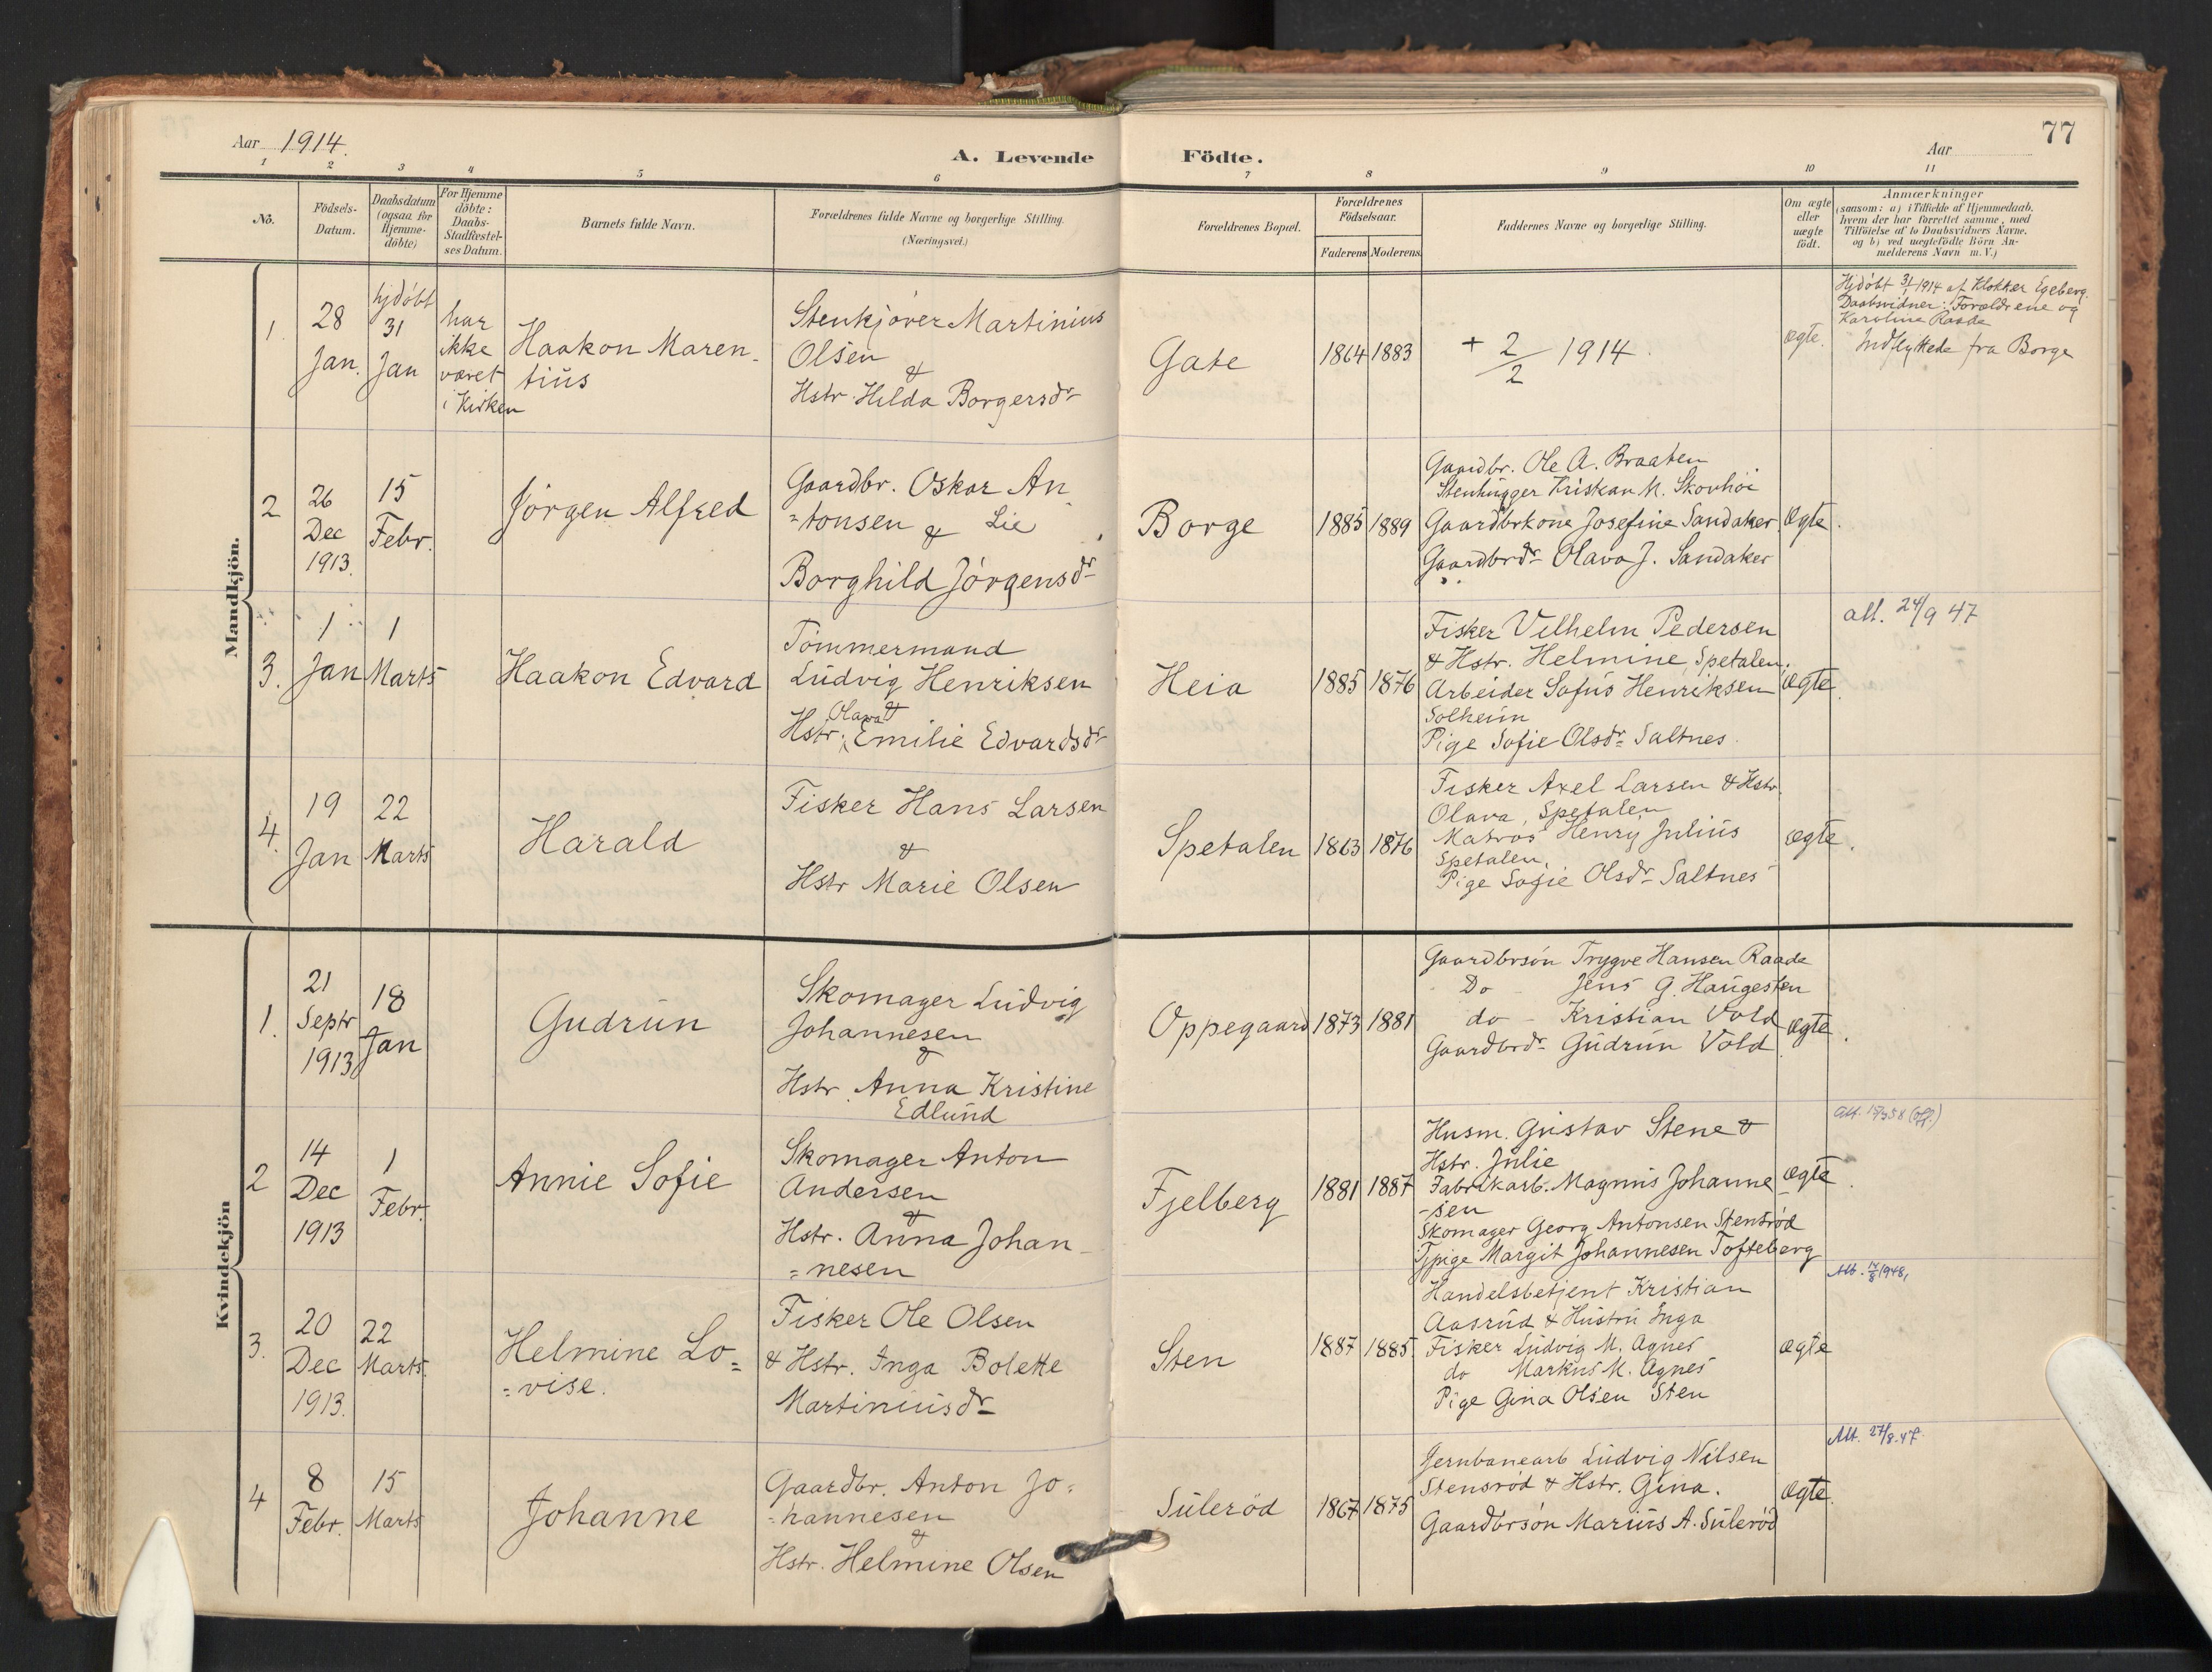 Aar 1914.
A. Levende Födte.
Aar
77
1 2 3 4 5 6 7 8 9 10 11
No.
Födsels-
Datum.
Daabsdatum
(ogsaa for
Hjemme-
döbte)
For Hjemme
döbte:
Daabs-
Stadfæstel-
ses Datum.
Barnets fulde Navn.
Forældrenes fulde Navne og borgerlige Stilling.
(Næringsvei.)
Forældrenes Bopæl.
Forældrenes
Födselsaar.
Faderens
Moderens
Faddernes Navne og borgerlige Stilling.
Om ægte
eller
uægte
födt.
Anmærkninger
(saasom: a) i Tilfælde af Hjemmedaab,
hvem der har forrettet samme, med
Tilföielse af to Daabsvidners Navne,
og b) ved uægtefödte Börn An-
melderens Navn m. V.)
Mandkjön.
1.
28
Jan.
hjdöbt
31
Jan
har
ikke
været
i Kirken
Haakon Maren-
tius
Stenkjører Martinius
Olsen
&
Hstr. Hilda Borgersdr
Gate
1864
1883
+ 2/2 1914.
ægte.
Hjdöbt 31/1 1914 af Klokker Egeberg.
Daabsvidner: Forældrene og
Karoline Raade
Indflyttede fra Borge
2
26
Dec
1913.
15
Febr.
Jörgen Alfred
Gaardbr. Oskar An-
=tonsen & Lie
Borghild Jörgensdr
Borge
1885
1889
Gaardbr. Ole A. Braaten
Stenhugger Kristian M. Skovhöi
Gaardbrkone Josefine Sandaker
Gaardbrdr Olava J. Sandaker
Ægte.
3.
1
Jan
1
Marts
Haakon Edvard
Tömmermand
Ludvig Henriksen
&
Hstr. Olava Emilie Edvardsdr
Heia
1885
1876
Fisker Vilhelm Pedersen
& Hstr. Helmine, Spetalen.
Arbeider Sofus Henriksen
Solheim
Pige Sofie Olsdr Saltnes.
Ægte.
att. 24/9 47
4.
19
Jan
22
Marts
Harald
Fisker Hans Larsen
&
Hstr Marie Olsen
Spetalen
1863
1876
Fisker Axel Larsen & Hstr.
Olava, Spetalen
Matros Henry Julius
Spetalen.
Pige Sofie Olsdr Saltnes
ægte.
Kvindekjön
1.
21
Septr
1913
18
Jan
Gudrun
Skomager Ludvig
Johannesen
&
Hstr. Anna Kristine
Edlund
Oppegaard
1873
1881
Gaardbrsön Trygve Hansen Raade
Do - Jens G. Haugesten
do - Kristian Vold
Gaardbrdr Gudrun Vold
Ægte.
2
14
Dec
1913
1
Febr.
Annie Sofie
Skomager Anton
Andersen
&
Hstr. Anna Johan-
=nesen
Fjelberg
1881
1887
Husm. Gustav Stene &
Hstr. Julie
Fabrikarb. Magnus Johanne
-sen
Skomager Georg Antonsen Stensröd
Tjpige Margit Johannesen Tofteberg
Ægte.
Att. (off.)
3.
20
Dec
1913.
22
Marts.
Helmine Lo=
=vise.
Fisker Ole Olsen
& Hstr. Inga Bolette
Martiniusdr
Sten
1887
1885
Handelsbetjent Kristian
Aasrud & Hustru Inga
Fisker Ludvig M. Agnes
do Markus M. Agnes
Pige Gina Olsen Sten
Ægte
Att. 17/8 1948,
4
8
Febr.
15
Marts
Johanne
Gaardbr. Anton Jo=
=hannesen
&
Hstr. Helmine Olsen
Suleröd
1867
1875
Jernbanearb Ludvig Nilsen
Stensröd & Hstr. Gina.
Gaardbrsön Marius A. Suleröd
Ægte.
Att. 27/8.47.